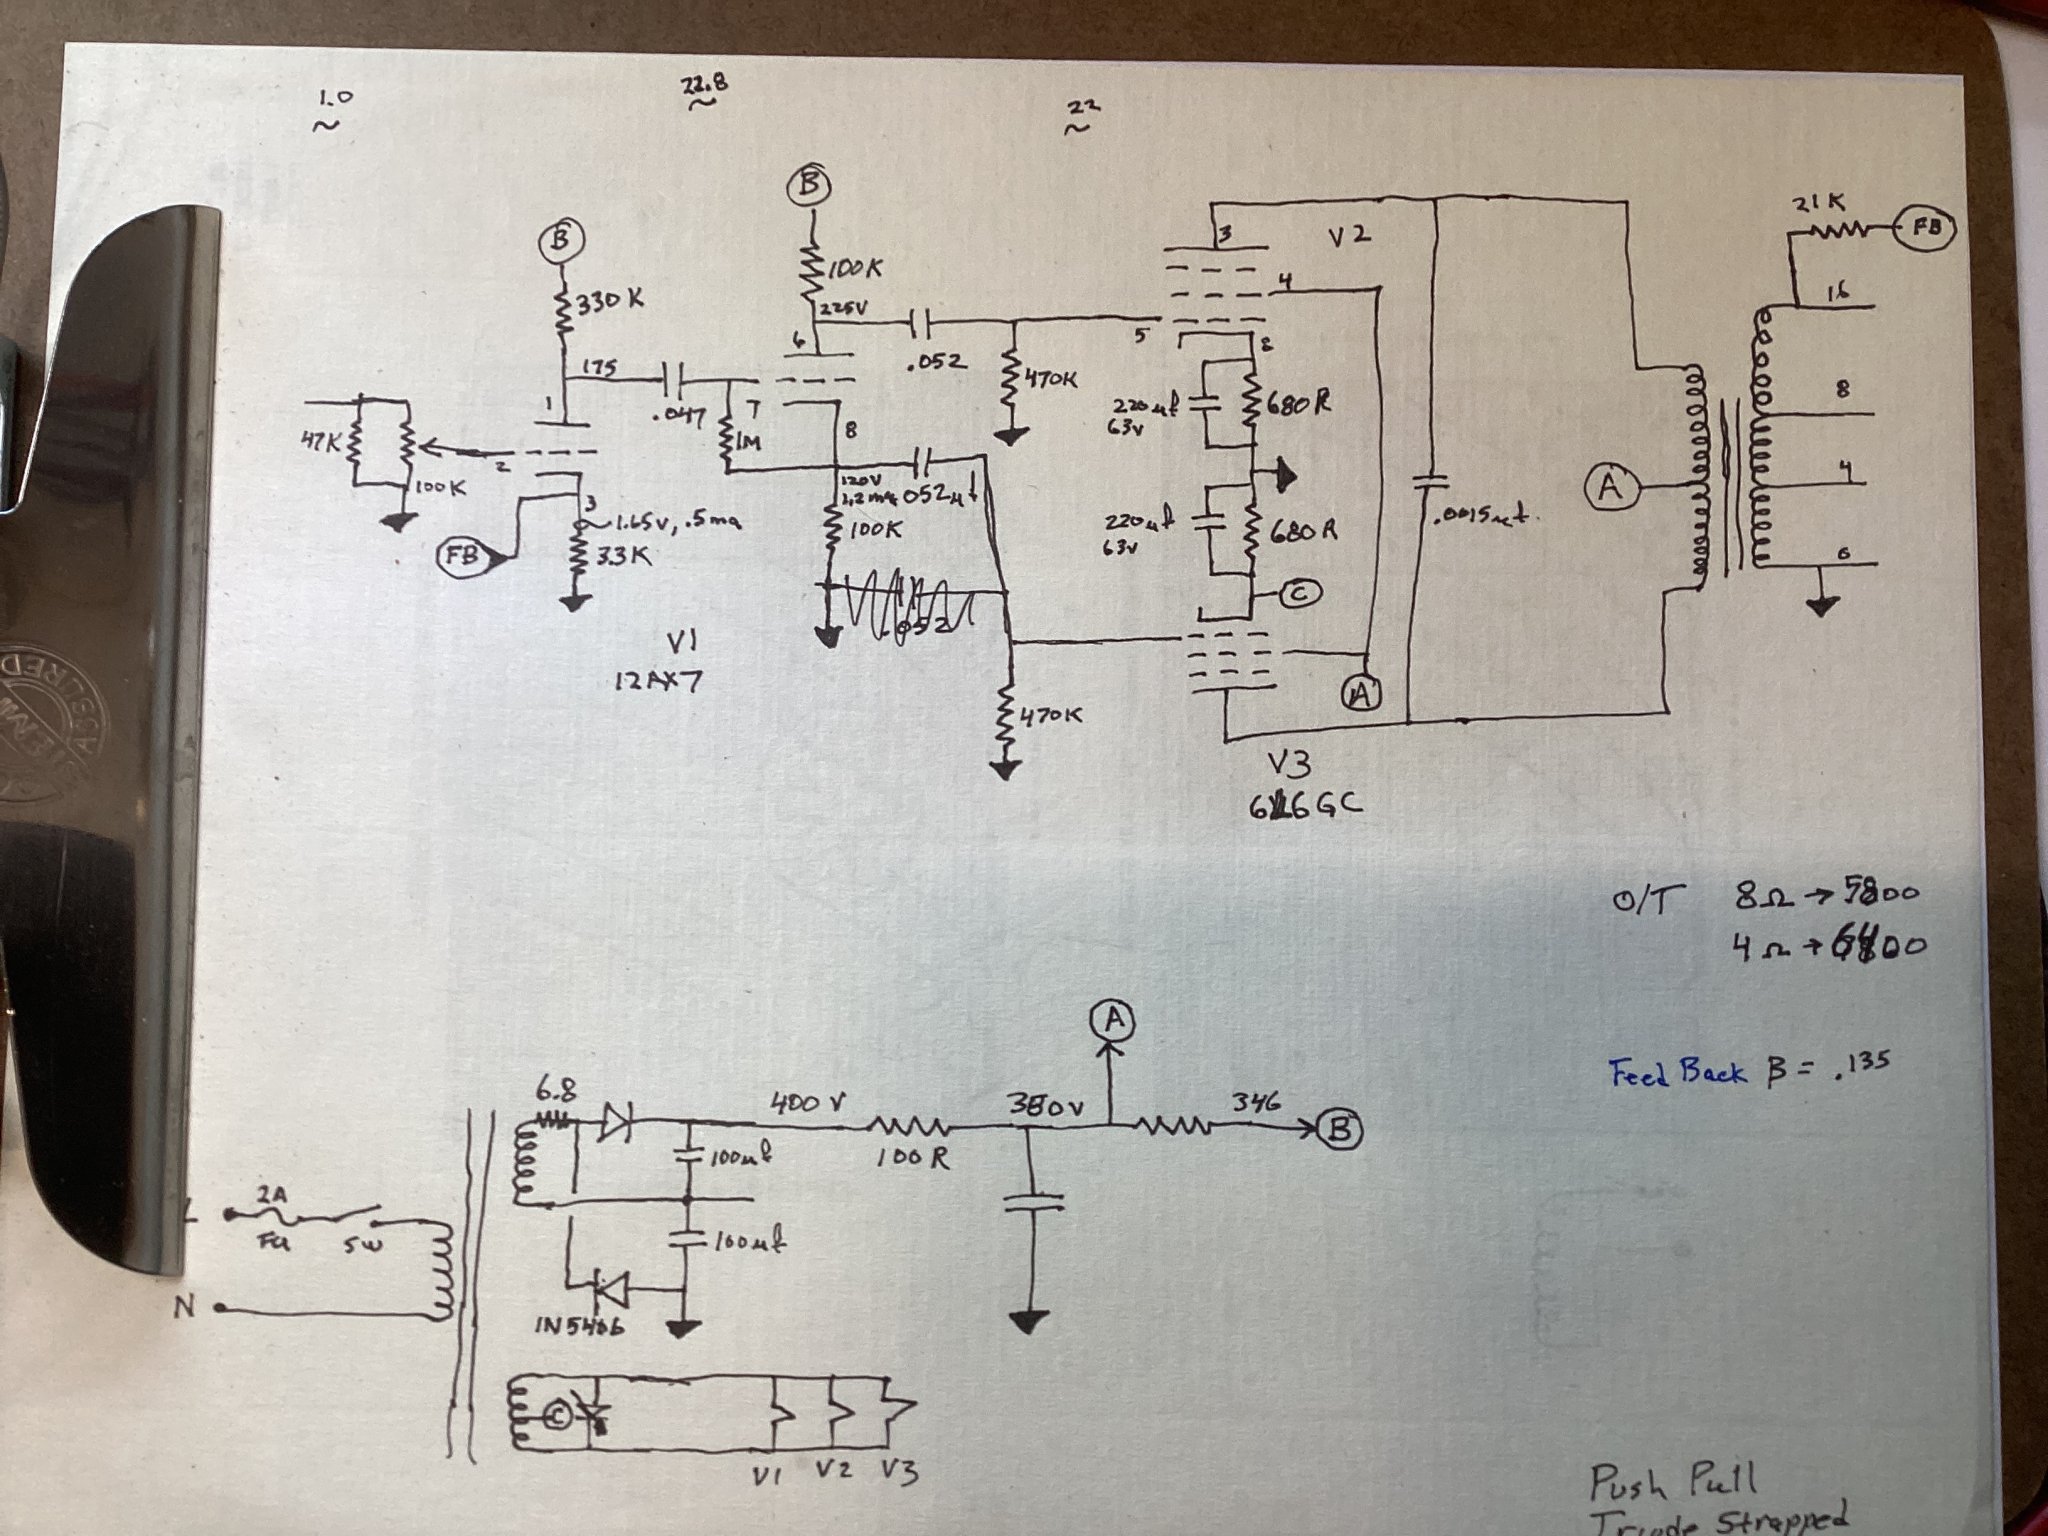 1.0
22.8
22
B
B
100K
225V
330K
175
1
6
.047
7
1M
8
.052
470K
47K
2
100K
3
1.65V, .5ma
FB
3.3K
120V
1,2ma
.052µf
100K
.052
V1
12AX7
470K
3
V2
4
5
8
220µf
63V
680R
220µf
63V
680R
C
A
.0015µf.
V3
6L6GC
A
21K
FB
16
8
4
0
O/T 8Ω → 5800
4Ω → 6400
Feed Back B = .135
6.8
400V
100R
A
346
B
100µf
100µf
1N5406
2A
Fu
SW
N
C
V1 V2 V3
Push Pull
Triode Strapped